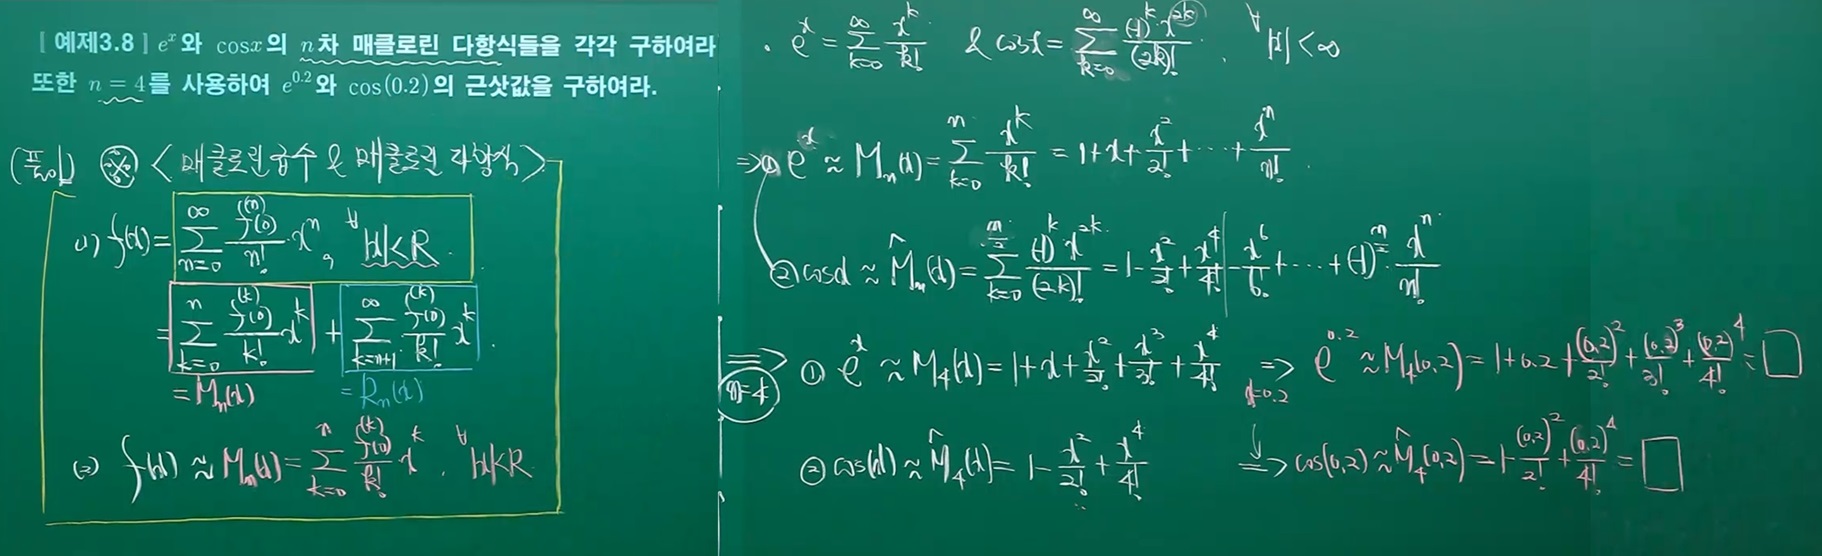 [ 예제3.8 ] eˣ와 cosx의 n차 매클로린 다항식들을 각각 구하여라
또한 n = 4를 사용하여 e^0.2와 cos(0.2)의 근삿값을 구하여라.
(풀이) ※ < 매클로린급수 & 매클로린 다항식 >
(1) f(x) = ∑_{n=0}^{∞} f^(n)(0)/n! · xⁿ, ∀|x|<R.
= ∑_{k=0}^{n} f^(k)(0)/k! x^k + ∑_{k=n+1}^{∞} f^(k)(0)/k! x^k.
= Mₙ(x) = Rₙ(x)
(2) f(x) ≈ Mₙ(x) = ∑_{k=0}^{n} f^(k)(0)/k! x^k, ∀|x|<R
· eˣ = ∑_{k=0}^{∞} x^k/k! & cosx = ∑_{k=0}^{∞} (-1)^k · x^{2k}/(2k)!, ∀|x|<∞
⇒ ① eˣ ≈ Mₙ(x) = ∑_{k=0}^{n} x^k/k! = 1+x+x²/2!+⋯+xⁿ/n!
② cosx ≈ M̂ₙ(x) = ∑_{k=0}^{n/2} (-1)^k x^{2k}/(2k)! = 1-x²/2!+x⁴/4!-x⁶/6!+⋯+(-1)^{n/2} · xⁿ/n!
⇒ n=4 ① eˣ ≈ M₄(x) = 1+x+x²/2!+x³/3!+x⁴/4! ⇒ x=0.2 e^0.2 ≈ M₄(0.2) = 1+0.2+(0.2)²/2!+(0.2)³/3!+(0.2)⁴/4! = □
② cos(x) ≈ M̂₄(x) = 1-x²/2!+x⁴/4! ⇒ cos(0.2) ≈ M̂₄(0.2) = 1-(0.2)²/2!+(0.2)⁴/4! = □